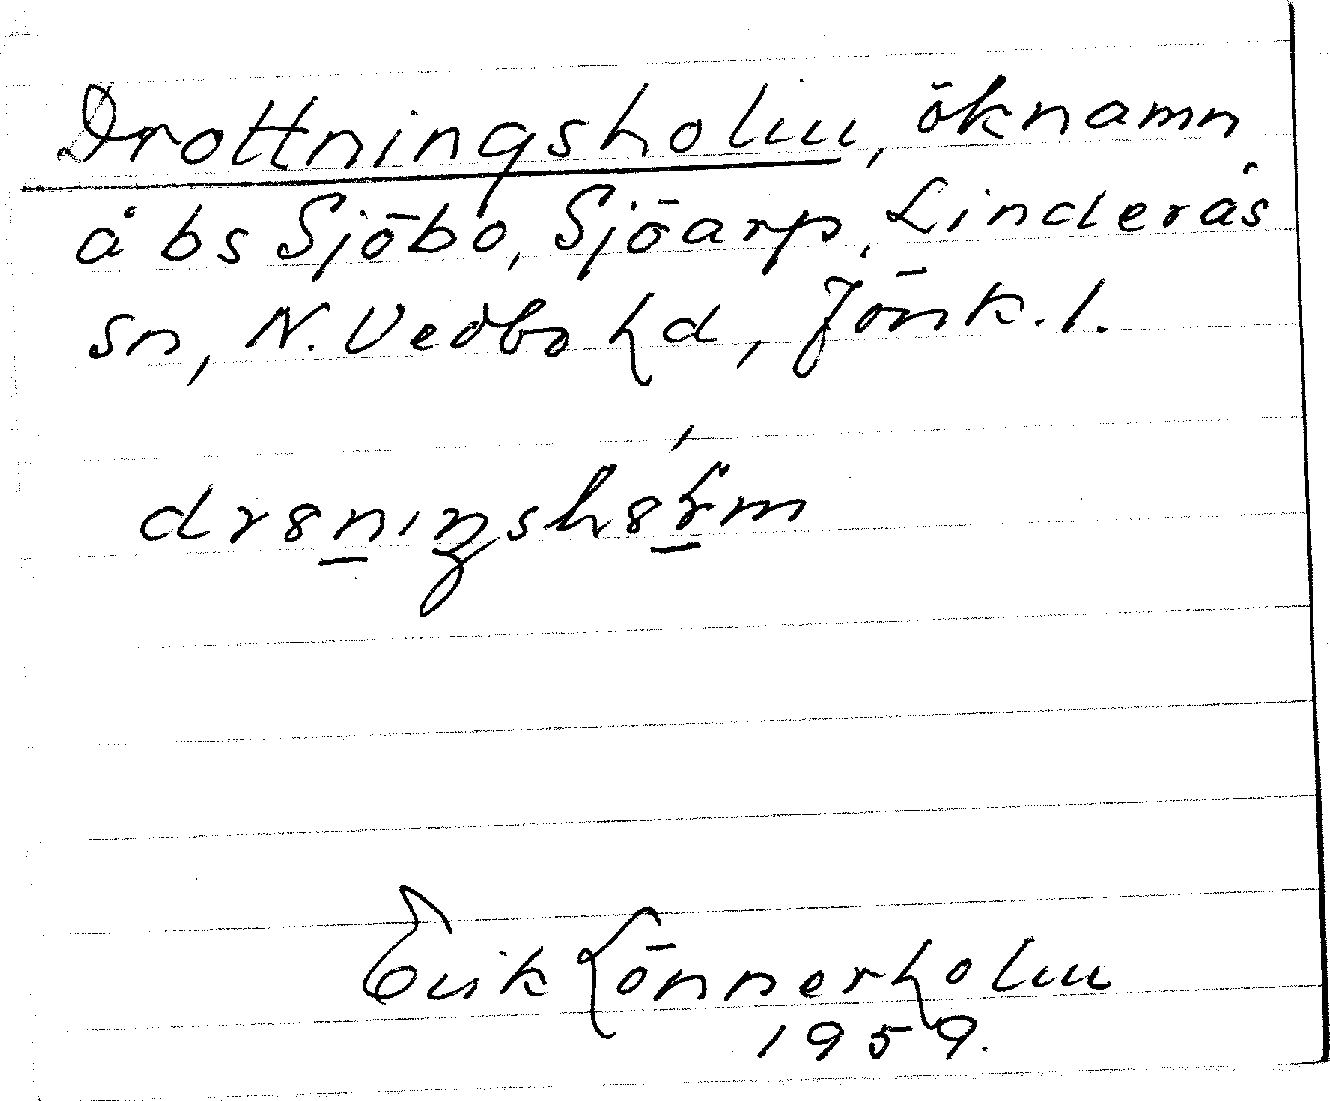 Drottningsholm, öknamn
å bs Sjöbo, Sjöarp, Linderås
sn, N. Vedbo hd, Jönk. l.
Erik Lönnerholm
1959.